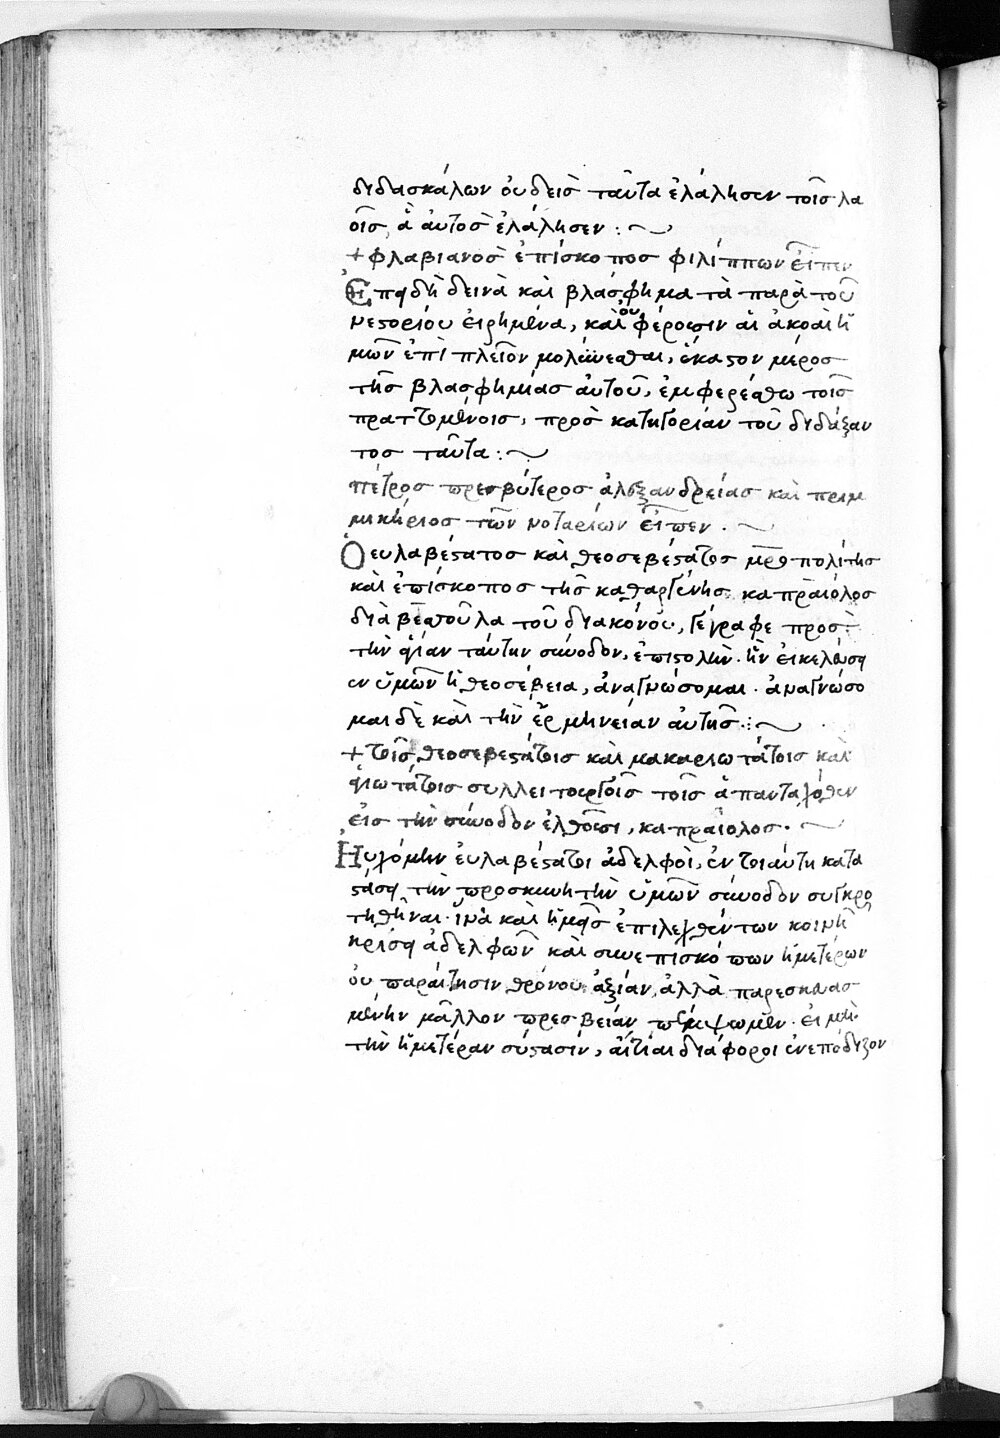 διδασκάλων οὐδεὶσ ταῦτα ἐλάλησεν τοῖσ λα
οῖσ, ἃ αὐτοσ ἐλάλησεν :~
+ φλαβιανοσ ἐπίσκοποσ φιλίππων εἶπεν
Ἐπειδὴ δεινὰ καὶ βλάσφημα τὰ παρὰ τοῦ
νεστορίου εἰρημένα, καὶ οὐ φέρουσιν αἱ ἀκοαὶ ἡ
μῶν ἐπὶ πλεῖον μολύνεσθαι, ἕκαστον μέροσ
τῆσ βλασφημίασ αὐτοῦ, ἐμφερέσθω τοῖσ
πραττομένοισ, πρὸσ κατηγορίαν τοῦ διδάξαν
τοσ ταῦτα :~
πέτροσ πρεσβύτεροσ ἀλεξανδρείασ καὶ πριμ
μικήριοσ τῶν νοταρίων εἶπεν . ~
Ὁ εὐλαβέστατοσ καὶ θεοσεβέστατοσ μητροπολίτησ
καὶ ἐπίσκοποσ τῆσ καθαργένησ καπραίολοσ
διὰ βεσσούλα τοῦ διακόνου, γέγραφε πρὸσ
τὴν ἁγίαν ταύτην σύνοδον, ἐπιστολὴν. ἣν εἰ κελεύσει
εν ὑμῶν ἡ θεοσέβεια, ἀναγνώσομαι. ἀναγνώσο
μαι δὲ καὶ τὴν ἑρμηνείαν αὐτῆσ :~
+ τοῖσ θεοσεβεστάτοισ καὶ μακαριωτάτοισ καὶ
ἁγιωτάτοισ συλλειτουργοῖσ τοῖσ ἁπανταχόθεν
εἰσ τὴν σύνοδον ἐλθοῦσι, καπραίολοσ. ~
Ηὐχόμην εὐλαβέστατοι ἀδελφοὶ, ἐν τοιαύτη κατα
στάσει τὴν προσκυνητὴν ὑμῶν σύνοδον συγκρο
τηθῆναι. ἵνα καὶ ἡμεῖσ ἐπιλεχθέντων κοινῆ
κρίσει ἀδελφῶν καὶ συνεπισκόπων ἡμετέρων
οὐ παραίτησιν θρόνου ἀξίαν, ἀλλὰ παρεσκευασ
μένην μᾶλλον πρεσβείαν πέμψωμεν. εἰ μὴ
τὴν ἡμετέραν σύστασιν, αἰτίαι διάφοροι ἐνεπόδιζον